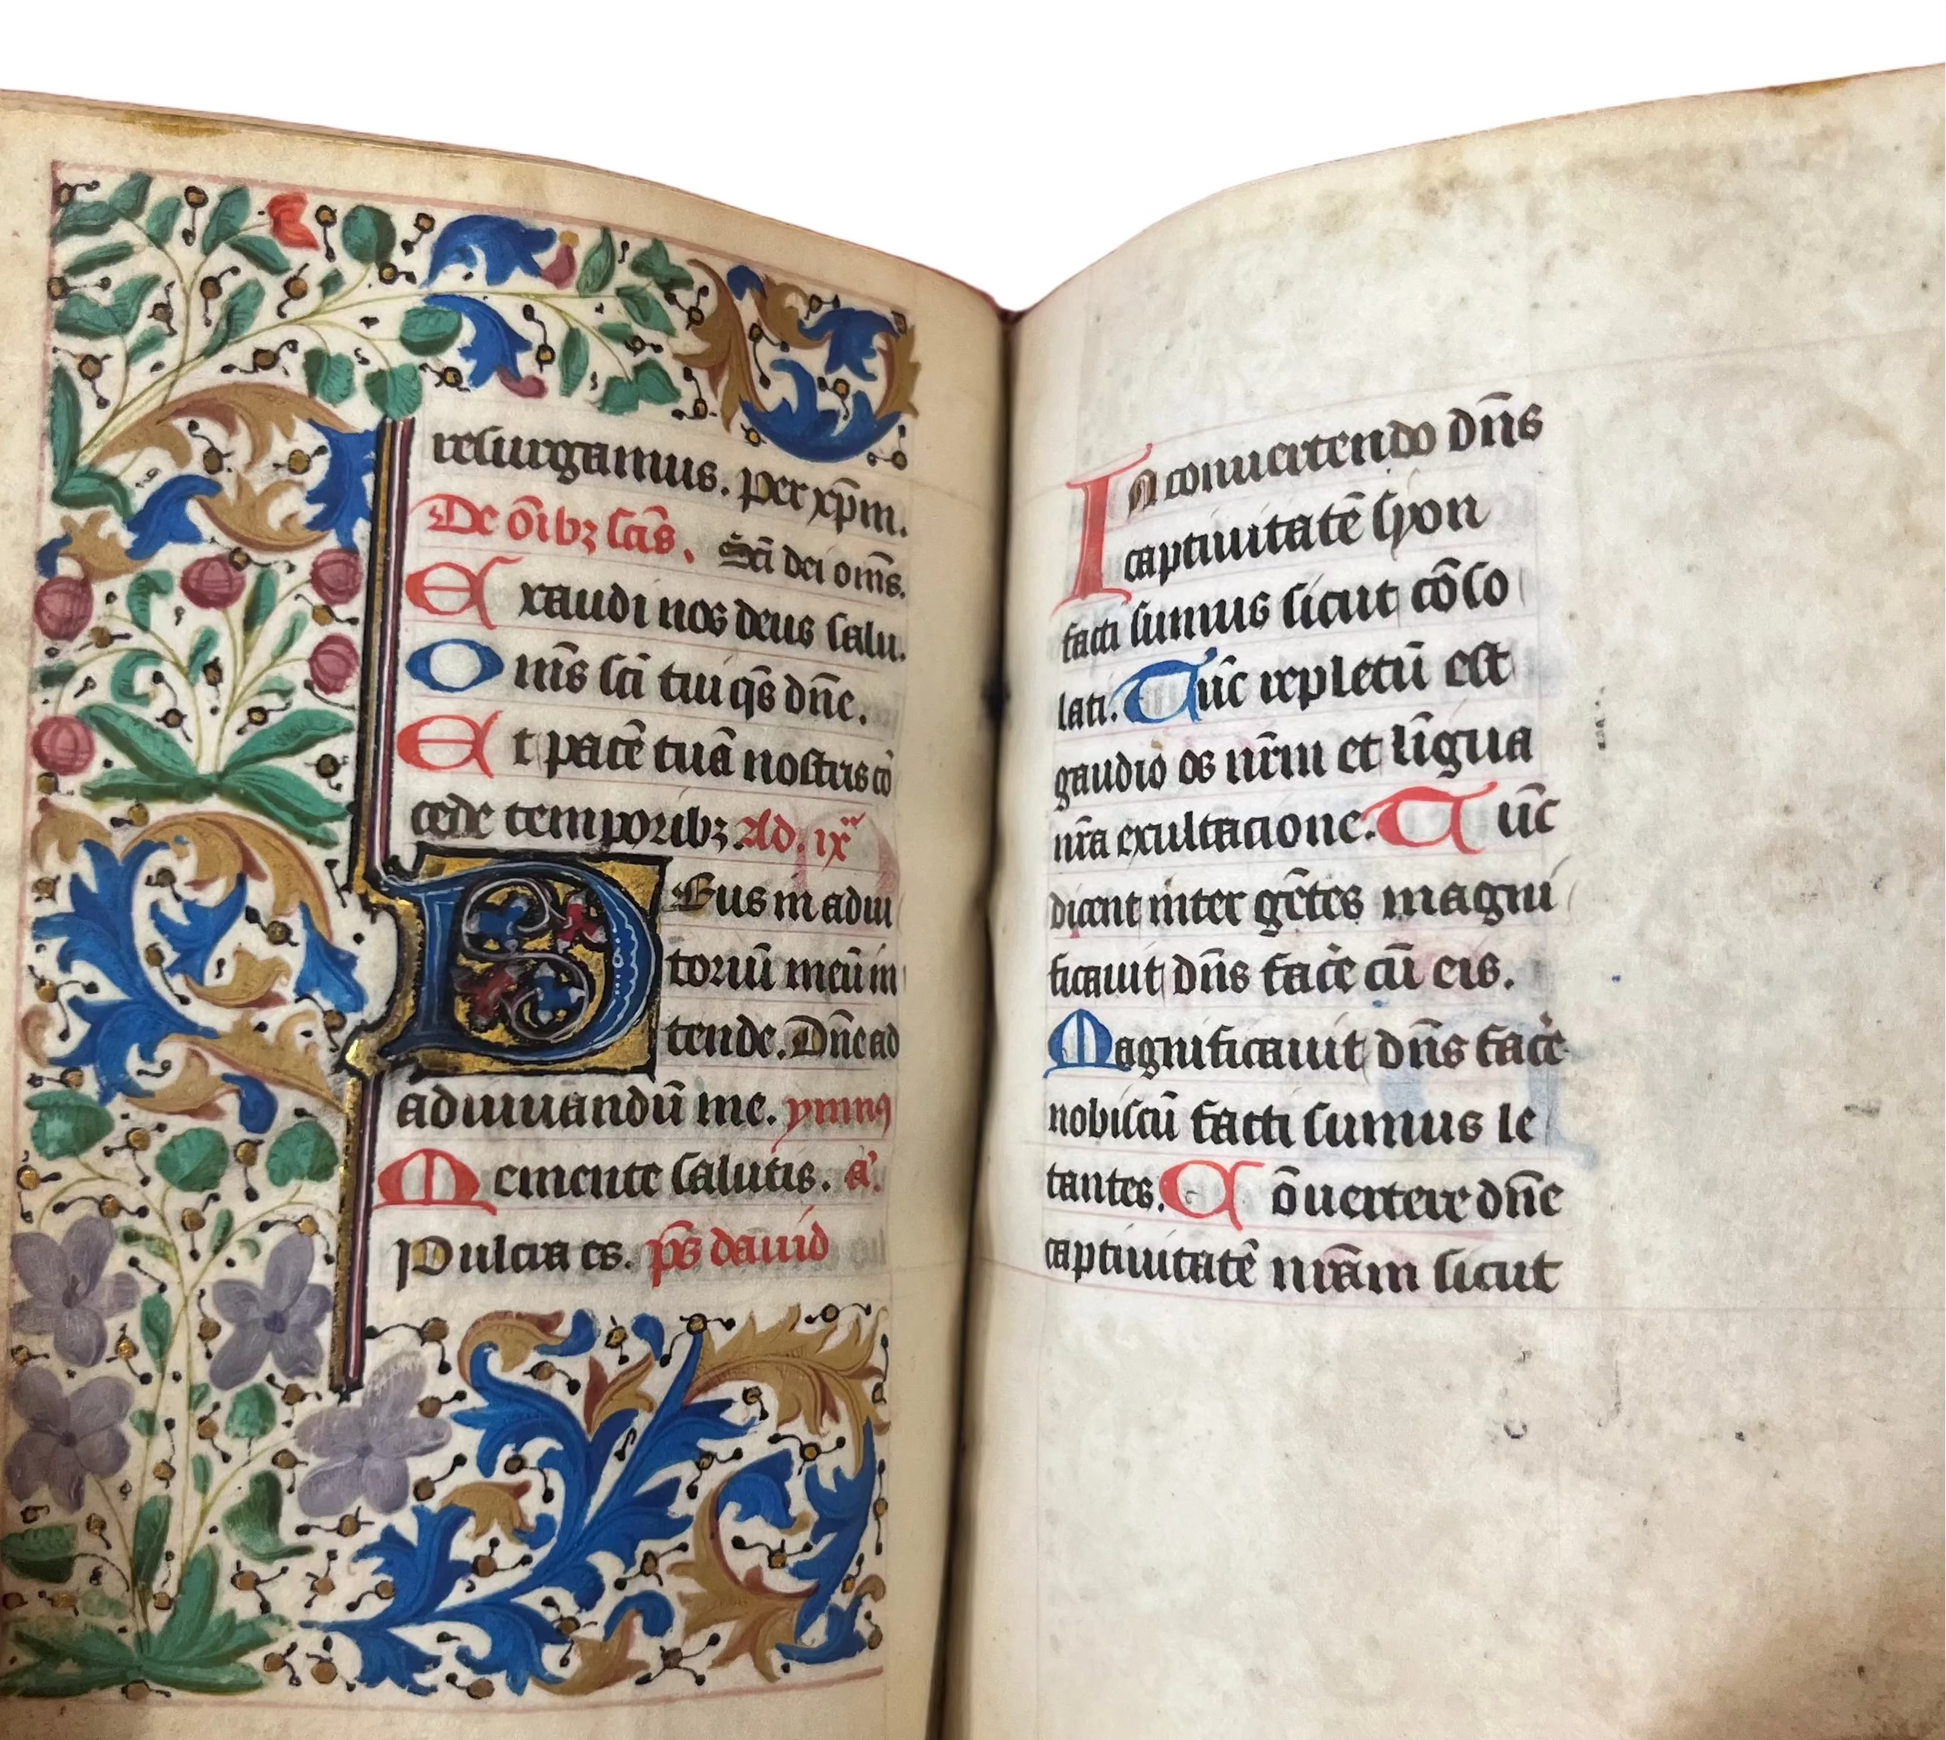 resurgamus. per xp̄m.
De om̄ibꝫ scīs. Sc̄i dei om̄s.
Exaudi nos deus salu.
Om̄s sc̄i tui q̄s dn̄e.
Et pacē tuā nostris cō
cede temporibꝫ. Ad. ix
DEus in adiu
toriū meū in
tende. Dn̄e ad
adiuuandū me. ymnꝯ
Memente salutis. a'.
Pulcra es. ps̄ dauid
In conuertendo dn̄s
captiuitatē syon
facti sumus sicut cōso
lati. Tūc repletū est
gaudio os nr̄m et līgua
nr̄a exultacione. Tūc
dicent inter gētes magni
ficauit dn̄s face cū eis.
Magnificauit dn̄s face
nobiscū facti sumus le
tantes. Cōuertere dn̄e
captiuitatē nr̄am sicut